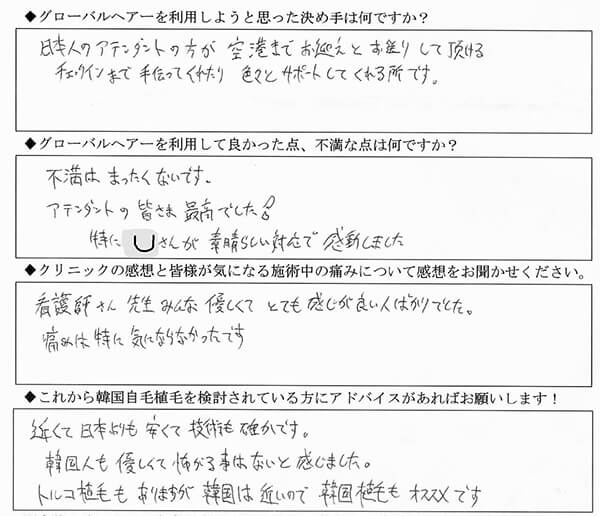 ◆グローバルヘアーを利用しようと思った決め手は何ですか？
日本人のアテンダントの方が 空港まで お迎えと お送り して 頂ける
チェックインまで 手伝ってくれたり 色々と サポートしてくれる所です。
◆グローバルヘアーを利用して良かった点、不満な点は何ですか？
不満は まったくないです。
アテンダントの 皆さま 最高でした!
特に Uさんが 素晴らしい対応で 感動しました
◆クリニックの感想と皆様が気になる施術中の痛みについて感想をお聞かせください。
看護師さん 先生 みんな 優しくて とても 感じが良い人ばかりでした。
痛みは 特に 気にならなかったです
◆これから韓国自毛植毛を検討されている方にアドバイスがあればお願いします！
近くて 日本よりも 安くて 技術も 確かです。
韓国人も 優しくて 怖がる事はないと 感じました。
トルコ植毛も ありますが 韓国は 近いので 韓国植毛も オススメです